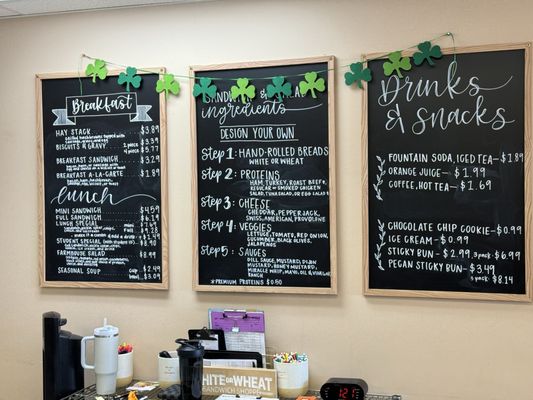 Breakfast
HAY STACK $3.89
BISCUITS & GRAVY 1 piece $3.39
2 piece $5.77
BREAKFAST SANDWICH $3.29
BREAKFAST A-LA-CARTE $1.89
Lunch
MINI SANDWICH $4.59
FULL SANDWICH $6.19
LUNCH SPECIAL
STUDENT SPECIAL
FARMHOUSE SALAD $8.99
SEASONAL SOUP CUP $2.49
ingredients
DESIGN YOUR OWN
Step 1: HAND-ROLLED BREADS
WHITE OR WHEAT
Step 2: PROTEINS
HAM, TURKEY, ROAST BEEF,
REGULAR OR SMOKED CHICKEN
SALAD, TUNA SALAD, OR EGG SALAD
Step 3: CHEESE
CHEDDAR, PEPPER JACK,
SWISS, AMERICAN, PROVOLONE
Step 4: VEGGIES
LETTUCE, TOMATO, RED ONION,
CUCUMBER, BLACK OLIVES,
JALAPENO
Step 5: SAUCES
DILL SAUCE, MUSTARD, DIJON
MUSTARD, HONEY MUSTARD,
MIRACLE WHIP, MAYO, OIL & VINEGAR
*PREMIUM PROTEINS $0.50
Drinks
& Snacks
FOUNTAIN SODA, ICED TEA - $1.89
ORANGE JUICE - $1.99
COFFEE, HOT TEA - $1.69
CHOCOLATE CHIP COOKIE - $0.99
ICE CREAM - $0.99
STICKY BUN - $2.99 3 pack $6.99
PECAN STICKY BUN - $3.49
3 pack $8.14
WHITE OR WHEAT
SANDWICH SHOPPE